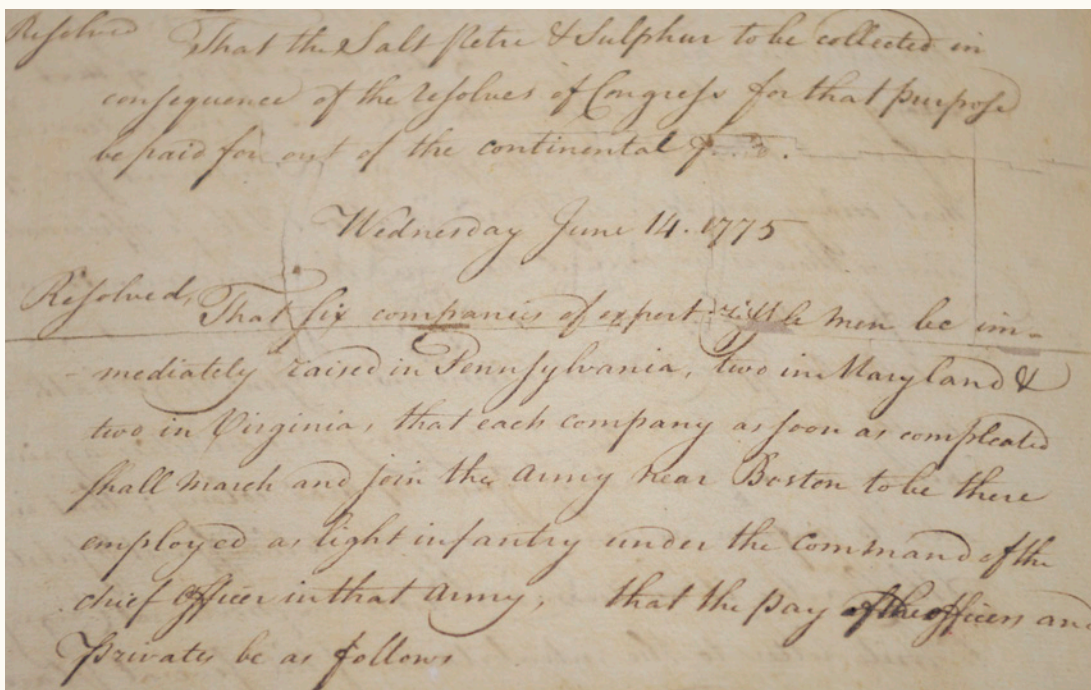 Resolved That the Salt petre & Sulphur to be collected in
consequence of the resolves of Congress for that purpose
be paid for out of the continental
Wednesday June 14. 1775
Resolved, That six companies of expert rifle men be im-
- mediately raised in Pennsylvania, two in Maryland &
two in Virginia, that each company as soon as compleated
shall march and join the army near Boston to be there
employed as light infantry under the command of the
chief Officer in that army; that the pay of the officers and
privates be as follows